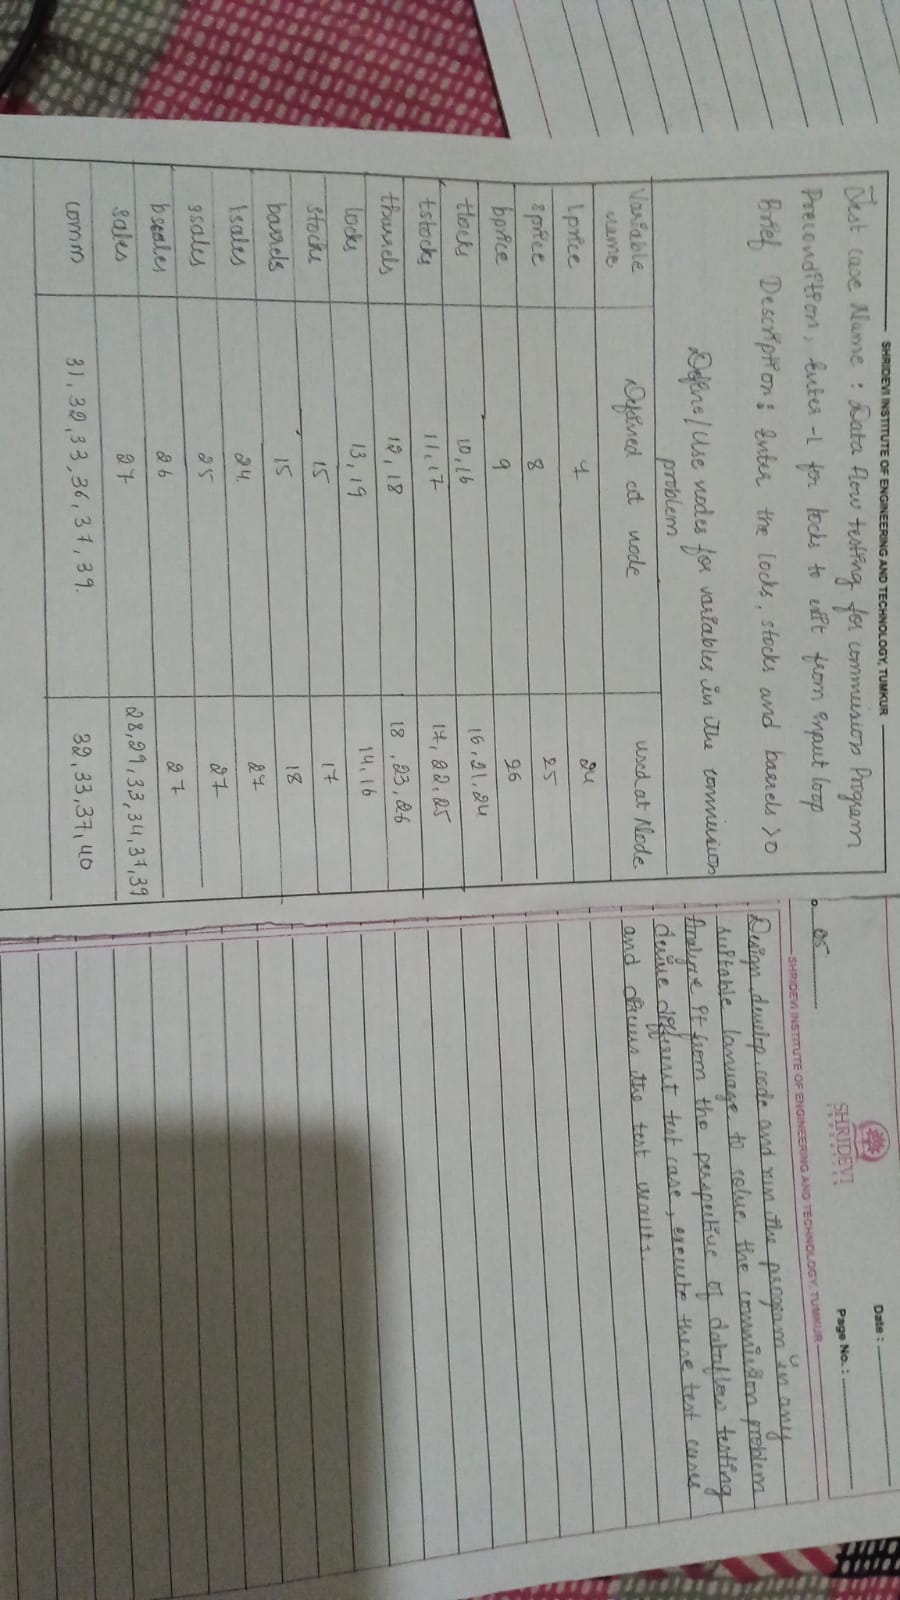 SHRIDEVI INSTITUTE OF ENGINEERING AND TECHNOLOGY, TUMKUR
Test case Name : Data flow testing for commission Program
Precondition, Enter -1 for locks to exit from input loop
Brief Description : Enter the locks, stocks and barrels > 0
Define/Use nodes for variables in the commission
problem
Variable name Defined at node used at Node
lprice 7 24
sprice 8 25
bprice 9 26
tlocks 10,16 16,21,24
tstocks 11,17 17,22,25
tbarrels 12,18 18,23,26
locks 13,19 14,16
stocks 15 17
barrels 15 18
lsales 24 27
ssales 25 27
bsales 26 27
sales 27 28,29,33,34,37,39
comm 31,32,33,36,37,39. 32,33,37,40
o. 05
SHRIDEVI
Date :
Page No. :
SHRIDEVI INSTITUTE OF ENGINEERING AND TECHNOLOGY, TUMKUR
Design, develop, code and run the program in any
suitable language to solve the commission problem
Analyze it from the perspective of dataflow testing
derive different test case, execute these test cases
and discuss the test results.